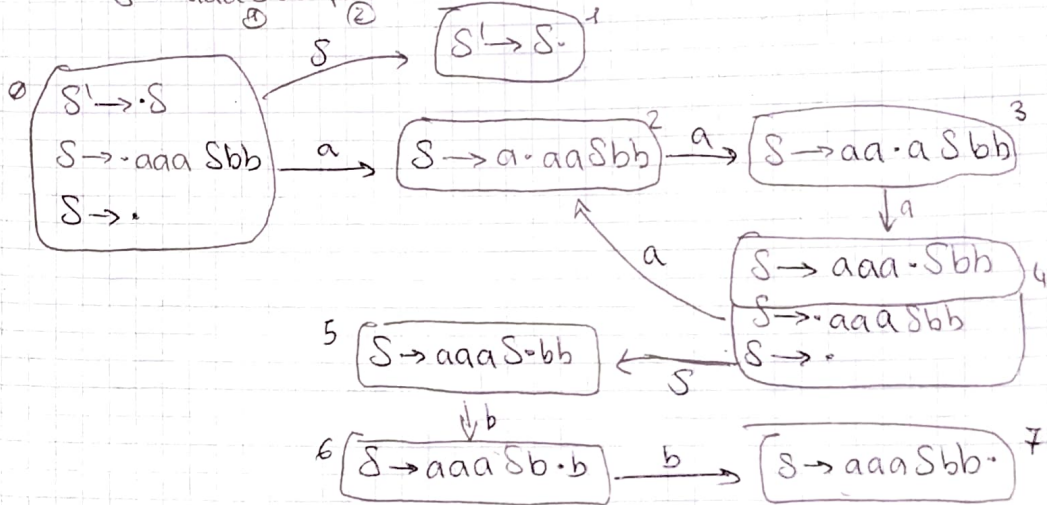 ① ②
S
S' → S· 1
0
S' → ·S
S → ·aaa Sbb
S → ·
a
S → a·aaSbb 2
a
S → aa·a Sbb 3
a
S → aaa·Sbb 4
S → ·aaa Sbb
S → ·
a
S
5 S → aaaS·bb
b
6 S → aaa Sb·b
b
S → aaaSbb· 7